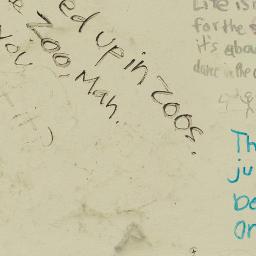 ed up in zoos.
e zoo, Man.
you
it?
Life is
for the
it's abou
dance in the
Th
ju
be
or